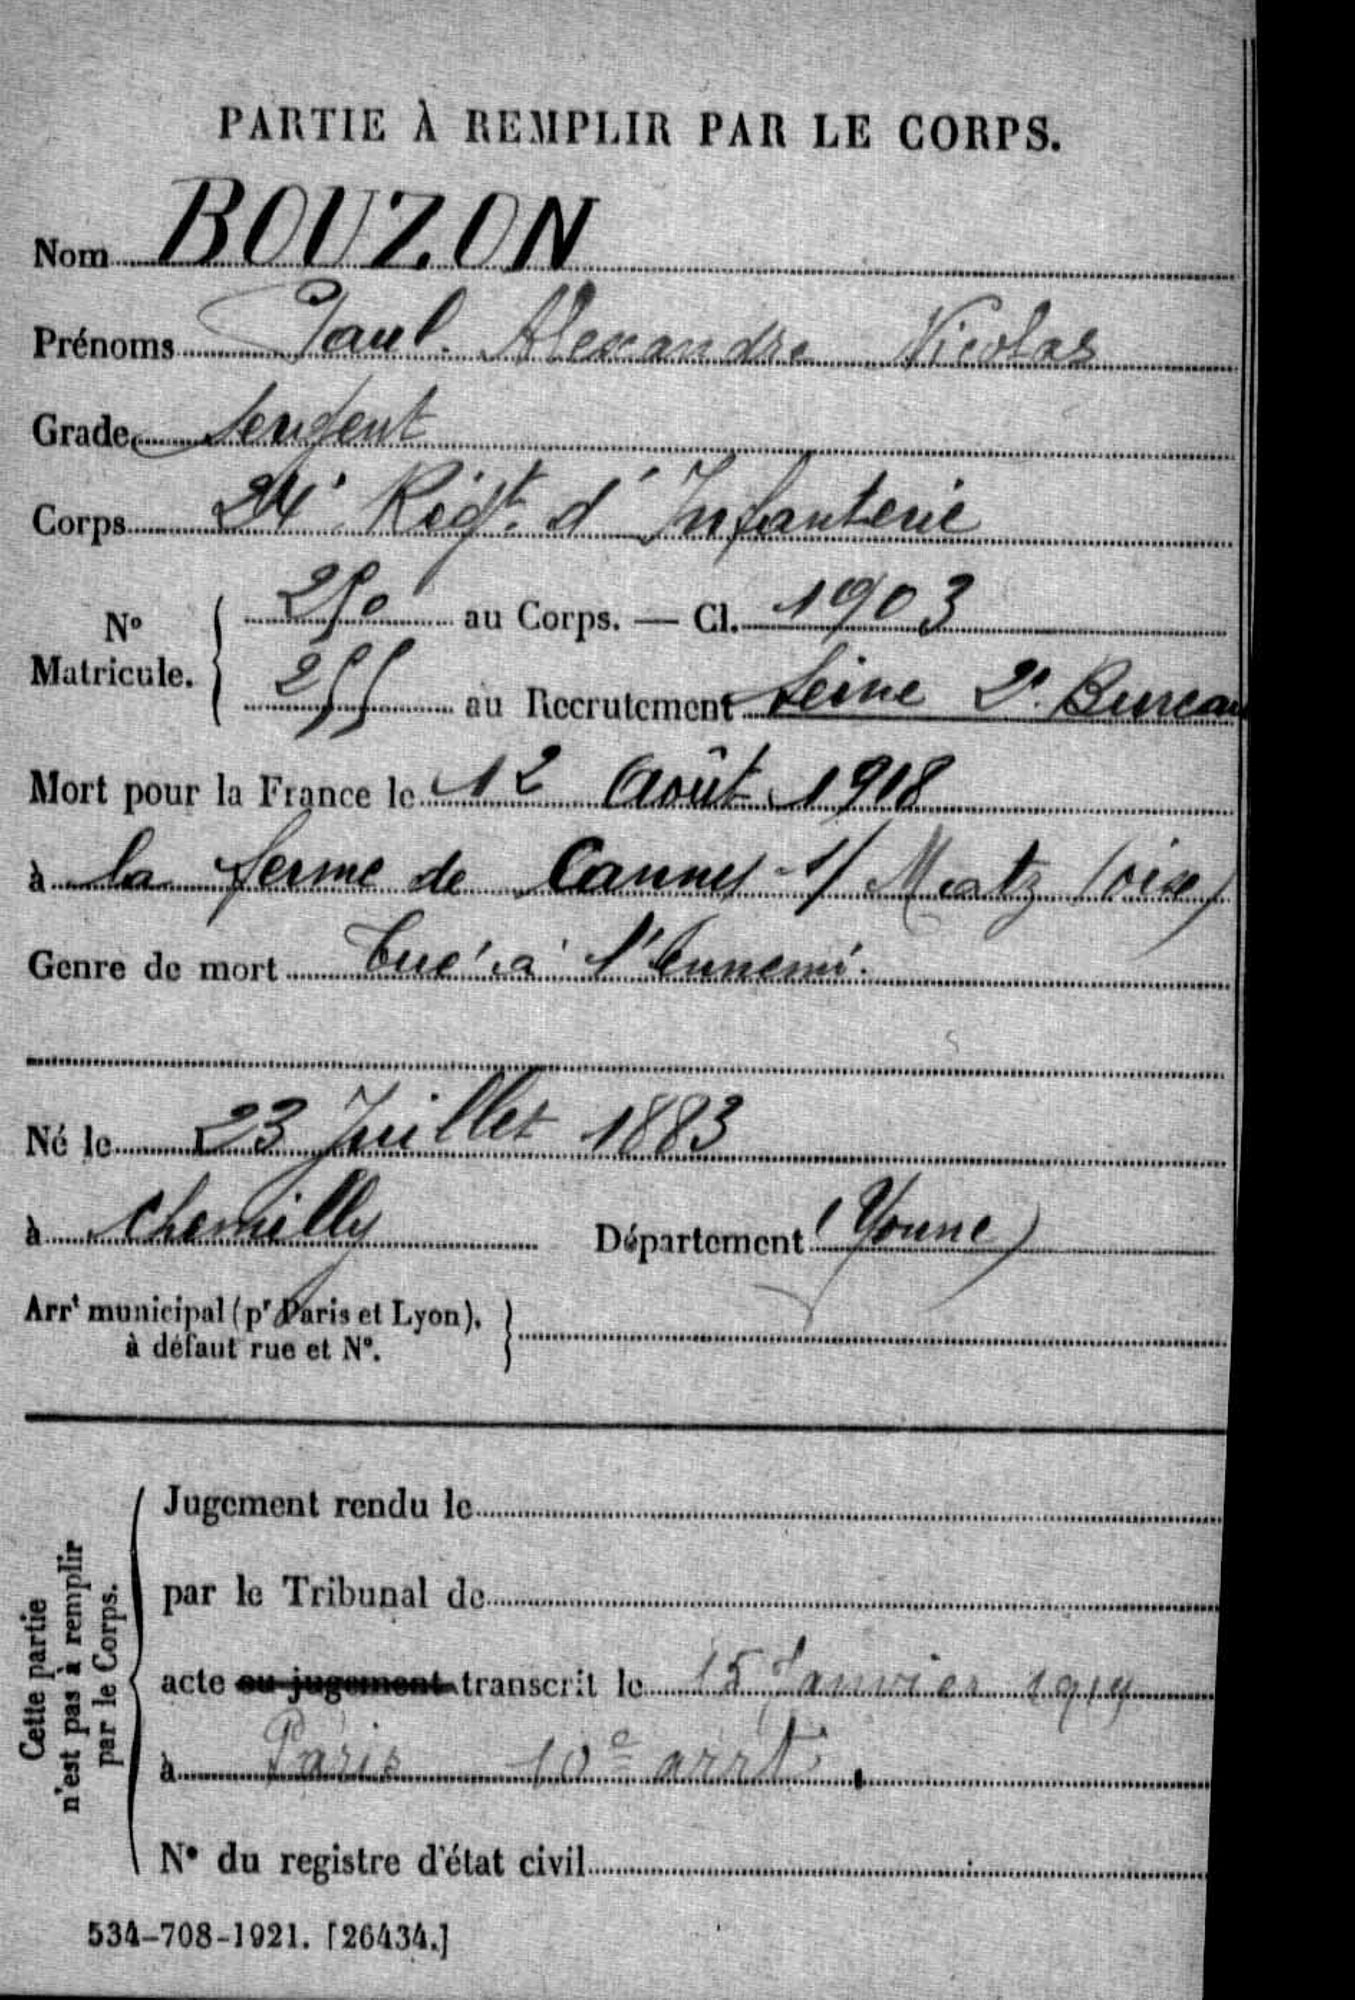 PARTIE À REMPLIR PAR LE CORPS.
Nom BOUZON
Prénoms Paul Alexandre Nicolas
Grade Sergent
Corps 24e Régt. d'Infanterie
No Matricule. { 250 au Corps. — Cl. 1903
255 au Recrutement Seine 2e Bureau
Mort pour la France le 12 Août 1918
à la ferme de Cannes s/ Matz (oise)
Genre de mort tué à l'Ennemi.
Né le 23 Juillet 1883
à Chemilly Département (Yonne)
Arrt municipal (pr Paris et Lyon), à défaut rue et No. }
Cette partie n'est pas à remplir par le Corps.
Jugement rendu le
par le Tribunal de
acte ou jugement transcrit le 15 Janvier 1919
à Paris 10e arrt.
No du registre d'état civil
534-708-1921. [26434.]